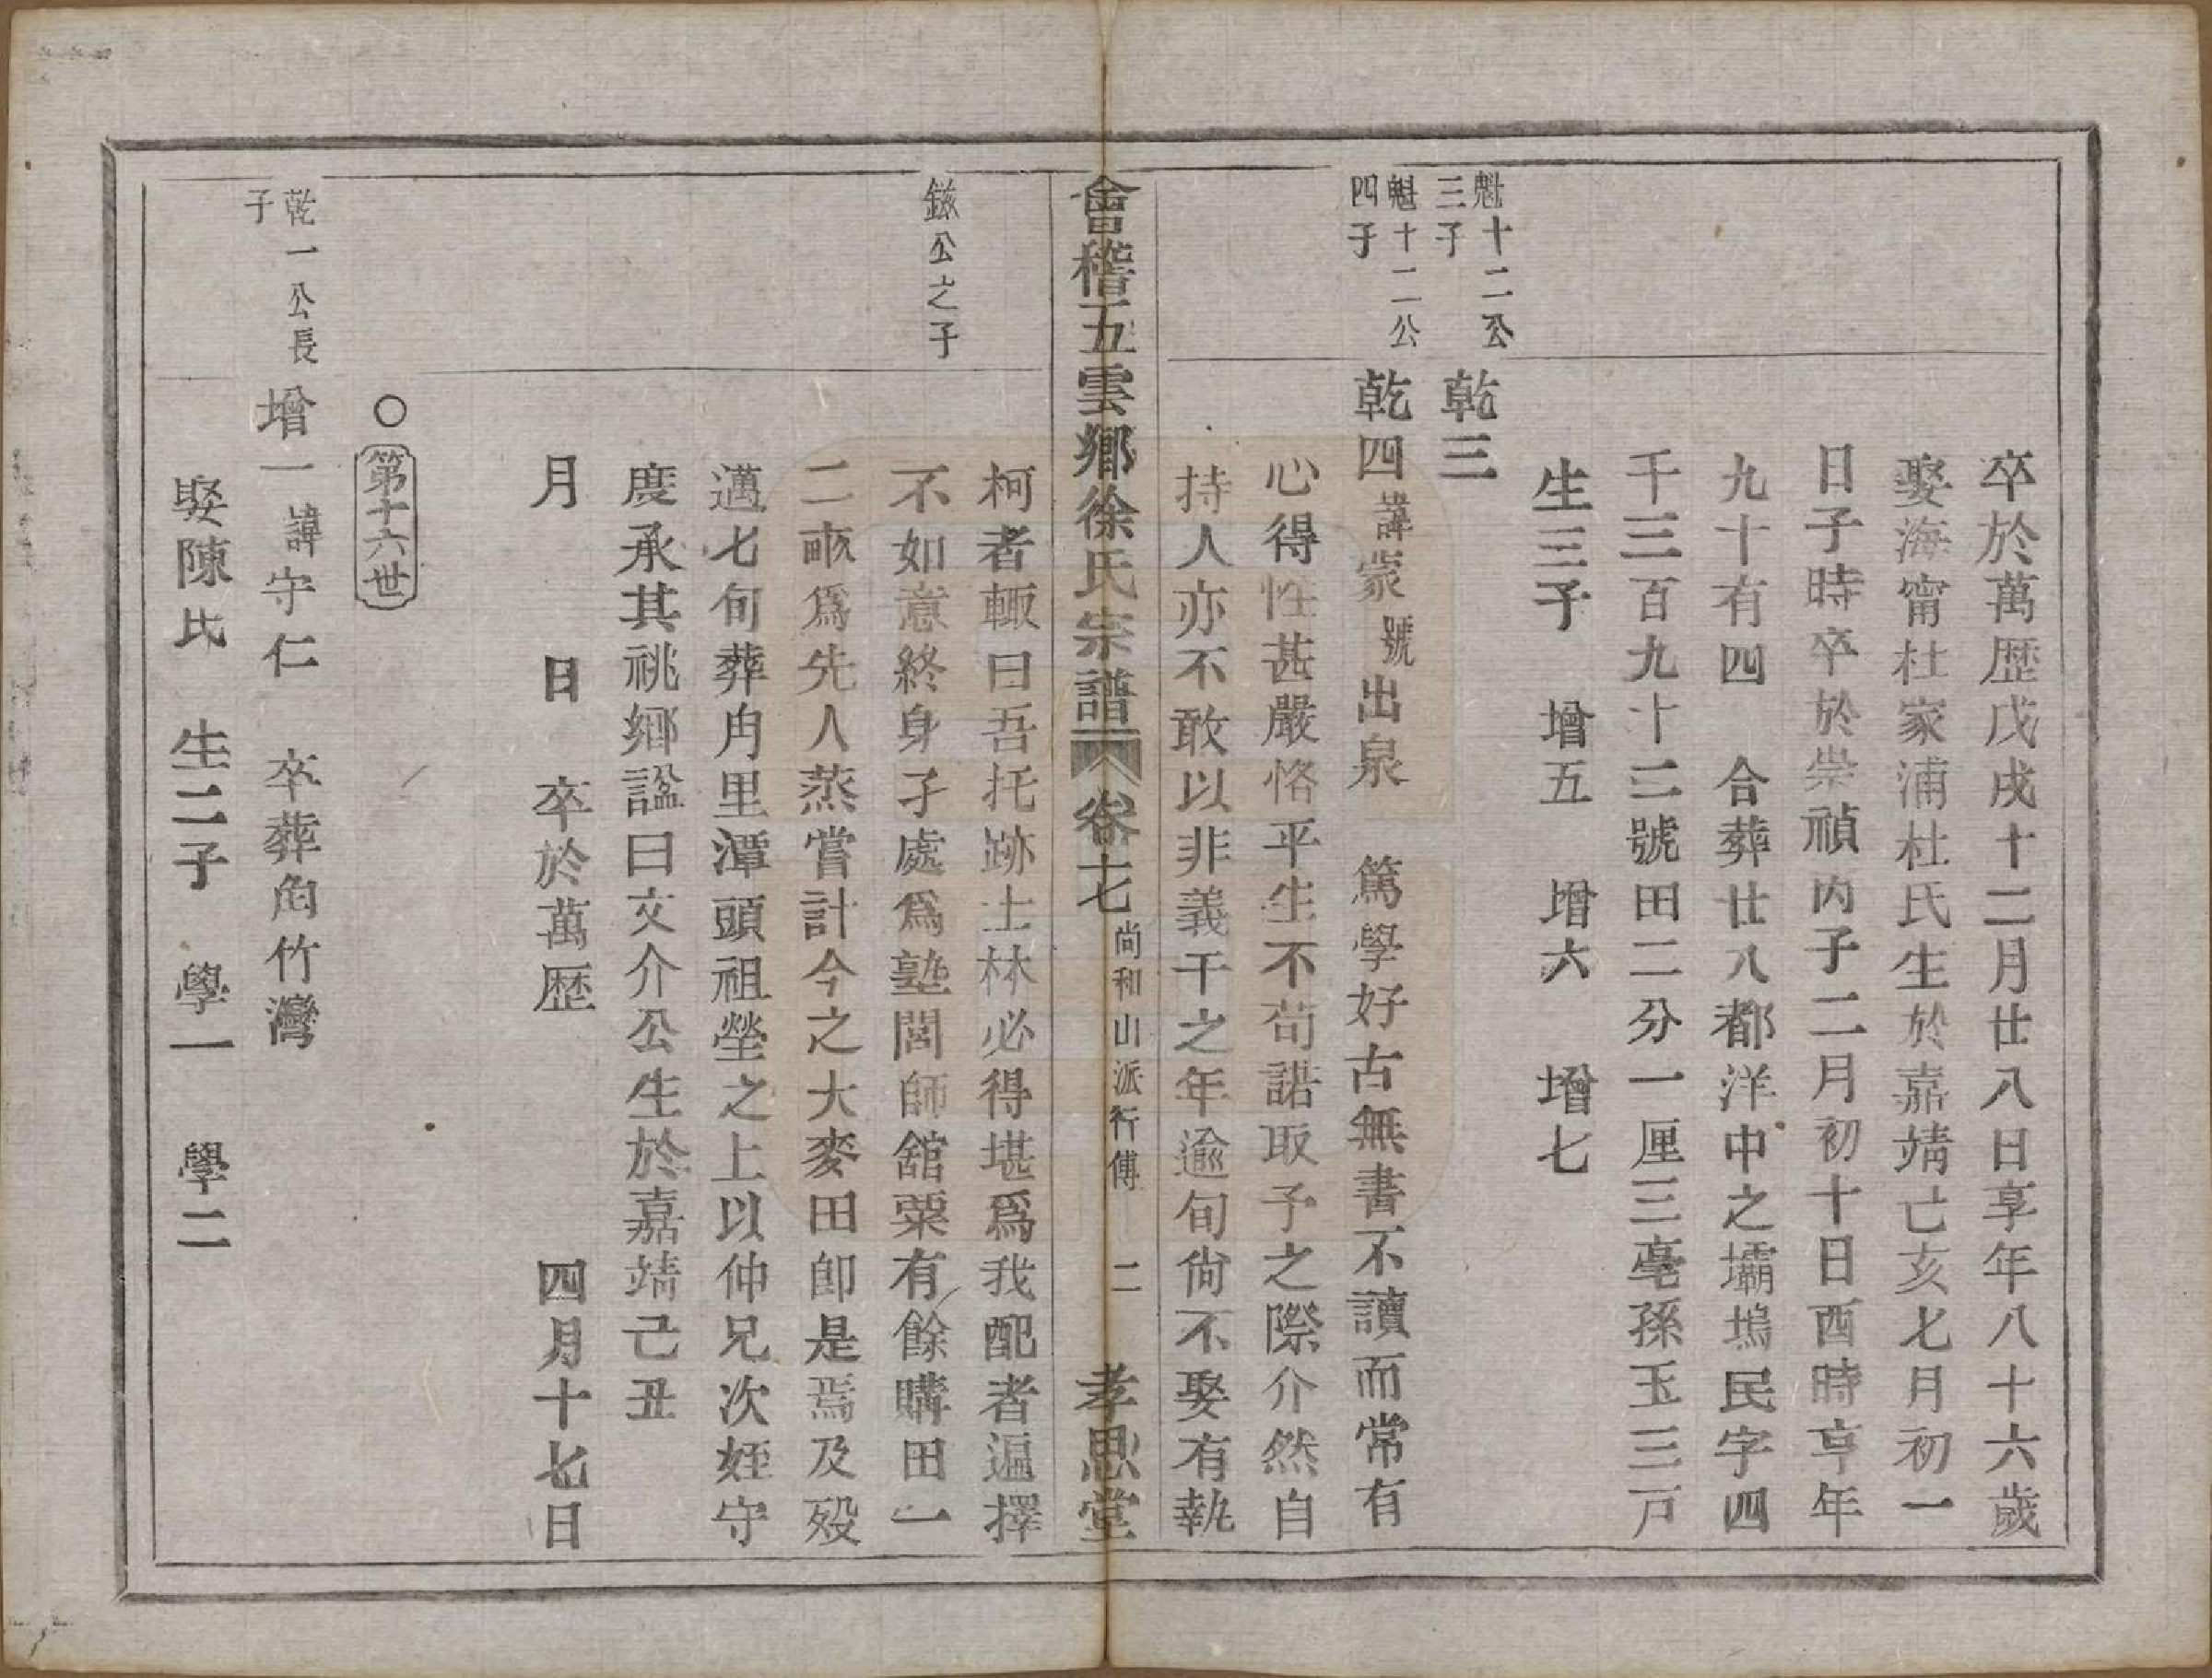 卒於萬歷戊戌十二月廿八日享年八十六歲
娶海甯杜家浦杜氏生於嘉靖己亥七月初一
日子時卒於崇禎丙子二月初十日酉時享年
九十有四 合葬廿八都洋中之壩塢民字四
千三百九十三號田二分一厘三毫孫玉三戸
生三子 增五 增六 增七
魁十二公
三子
乾三
魁十二公
四子
乾四諱蒙號出泉 篤學好古無書不讀而常有
心得性甚嚴恪平生不苟諾取予之際介然自
持人亦不敢以非義干之年逾旬尙不娶有執
會稽五雲鄉徐氏宗譜 卷十七 尙和山派行傳 二 孝思堂
柯者輒曰吾托跡士林必得堪爲我配者遍擇
鉉公之子
不如意終身孑處爲塾閭師舘粟有餘購田一
二畝爲先人蒸嘗計今之大麥田卽是焉及歿
邁七旬葬冉里潭頭祖塋之上以仲兄次姪守
度承其祧鄉諡曰文介公生於嘉靖己丑
月 日 卒於萬歷 四月十七日
○第十六世
乾一公長
子
增一諱守仁 卒葬角竹灣
娶陳氏 生二子 學一 學二